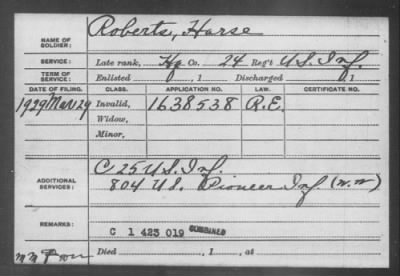 NAME OF SOLDIER: Roberts, Harse
SERVICE: Late rank, Hq Co. 24 Reg't U.S. Inf.
TERM OF SERVICE: Enlisted 0, 1 Discharged 0, 1
DATE OF FILING. CLASS. APPLICATION NO. LAW. CERTIFICATE NO.
1929 Mar 29 Invalid, 1638538 R.E.
Widow,
Minor,
ADDITIONAL SERVICES: C 25 U.S. Inf.
804 U.S. Pioneer Inf (W.W)
REMARKS: C 1 423 019 COMBINED
Died , 1 , at